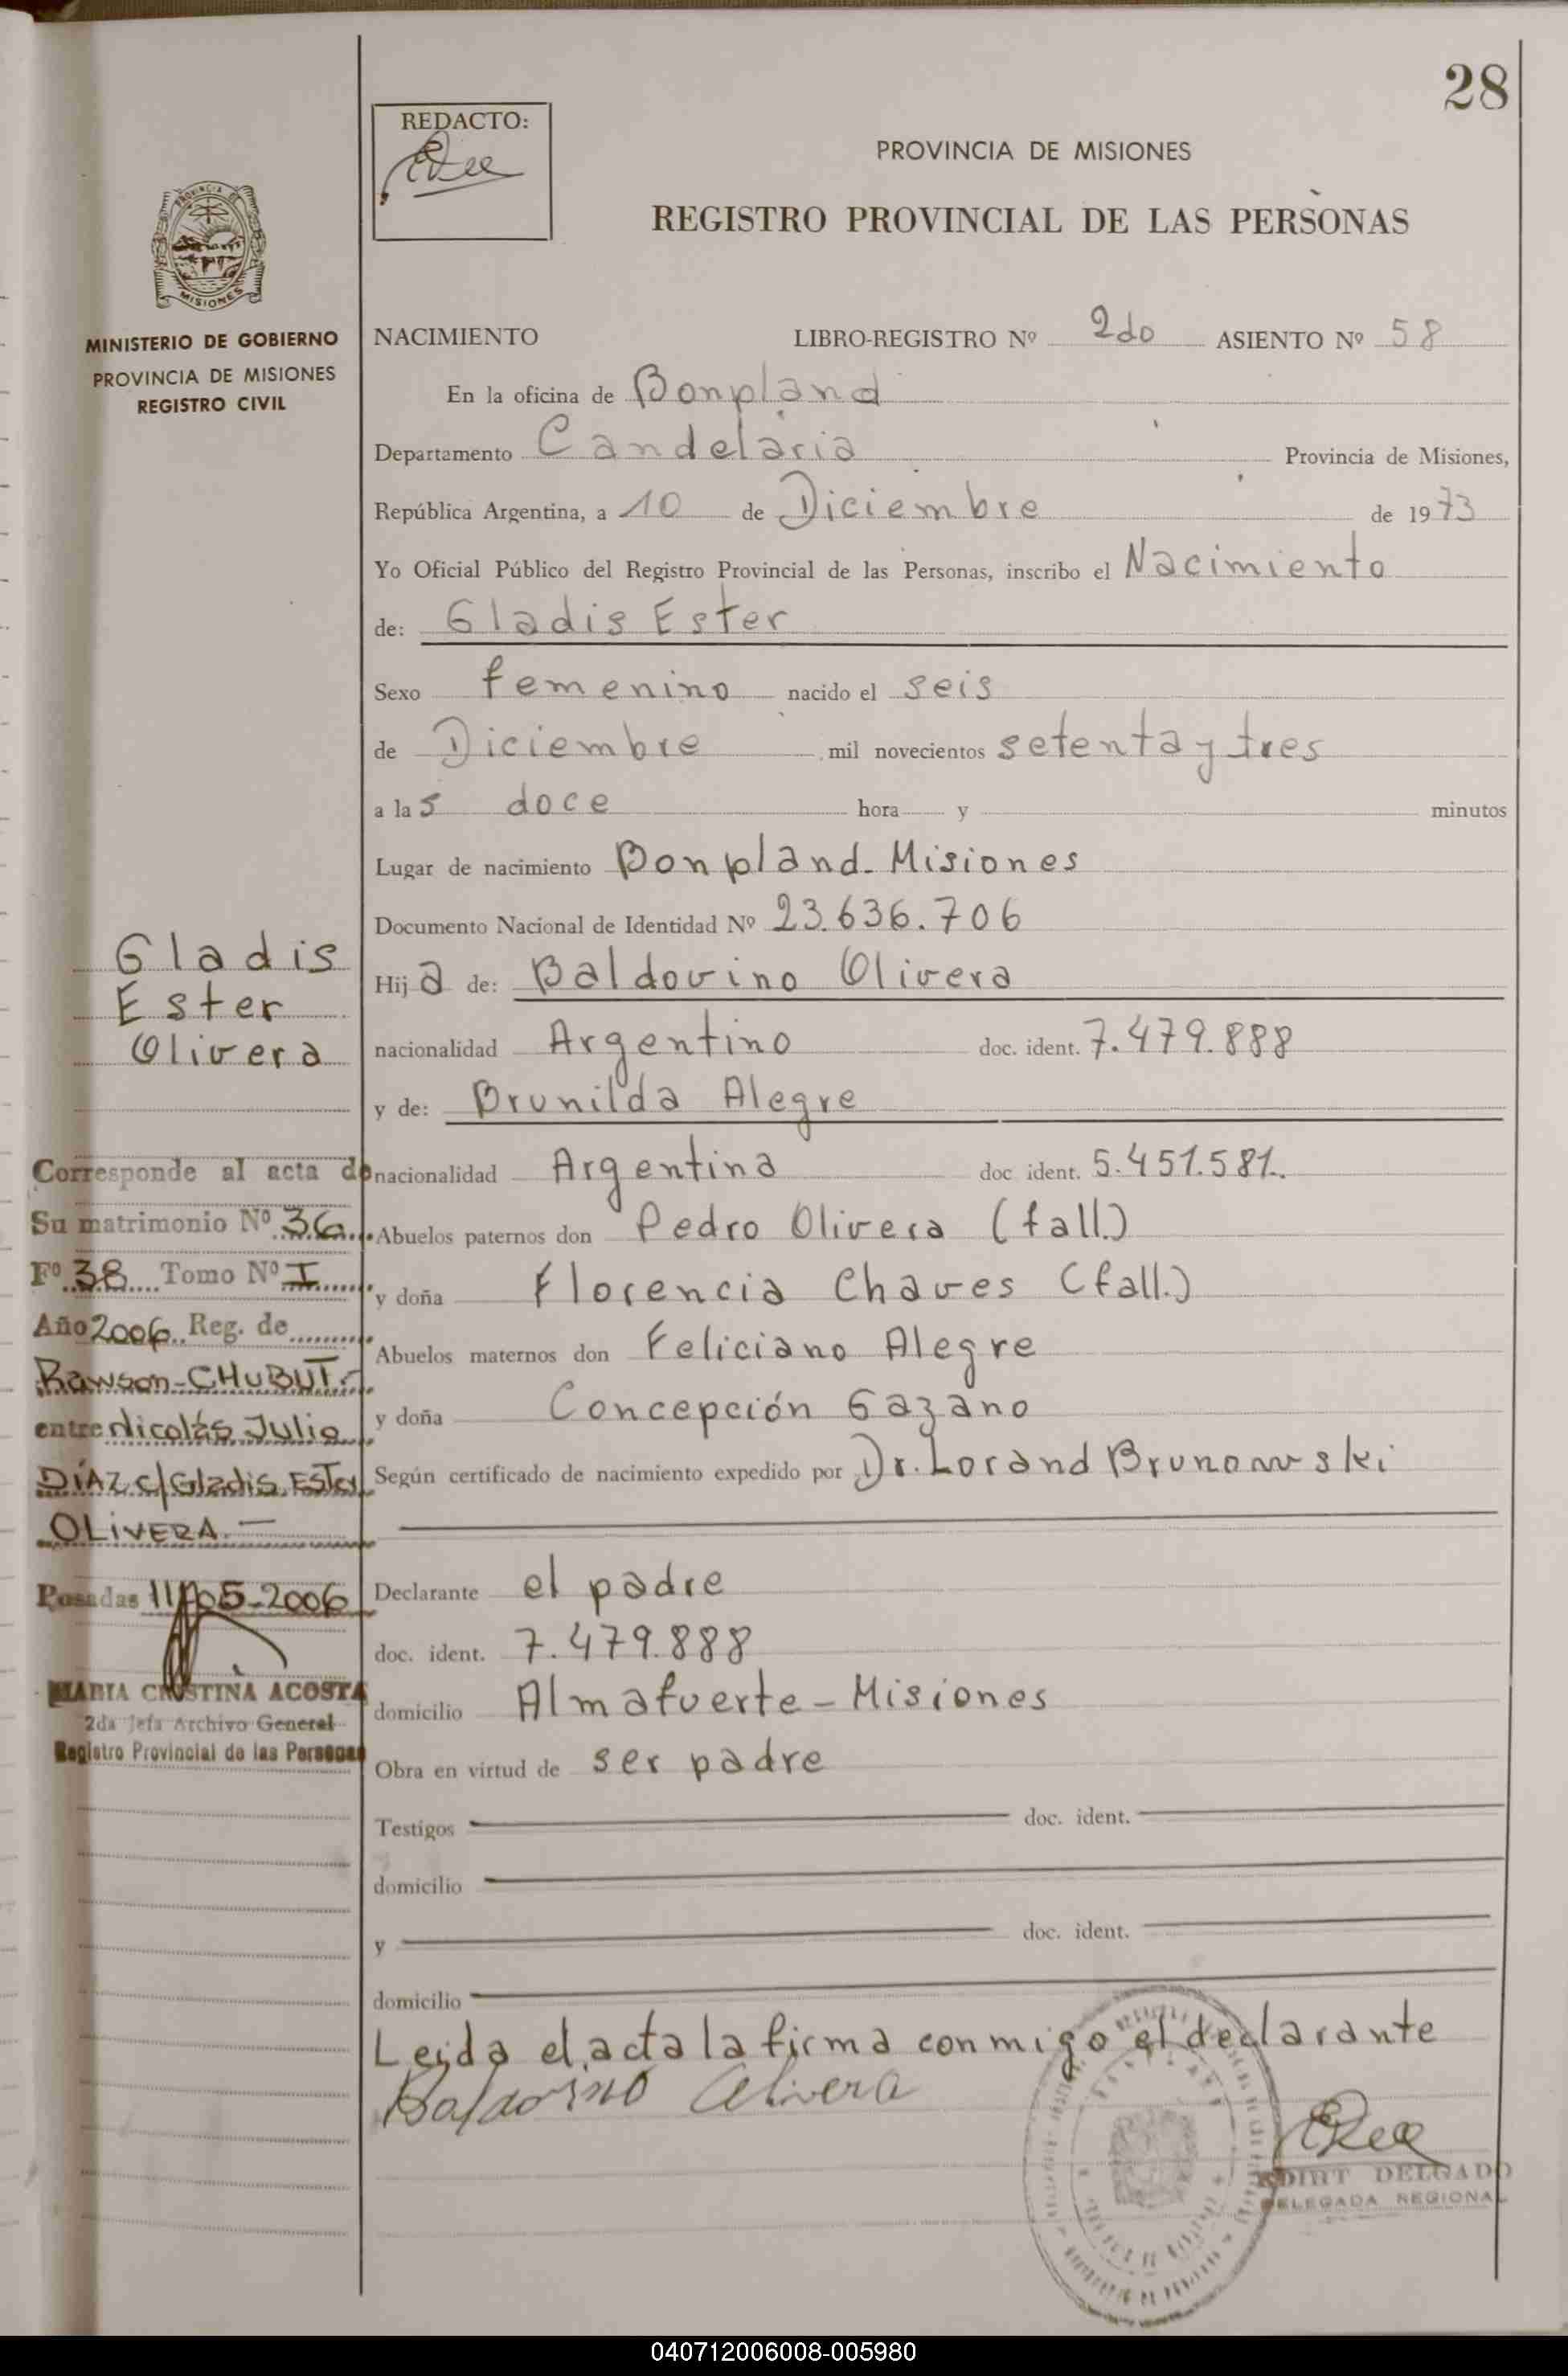 28
REDACTO:
PROVINCIA DE MISIONES
REGISTRO PROVINCIAL DE LAS PERSONAS
PROVINCIA DE
MISIONES
MINISTERIO DE GOBIERNO
PROVINCIA DE MISIONES
REGISTRO CIVIL
NACIMIENTO LIBRO-REGISTRO Nº 2do ASIENTO Nº 58
En la oficina de Bonpland
Departamento Candelaria Provincia de Misiones,
República Argentina, a 10 de Diciembre de 1973
Yo Oficial Público del Registro Provincial de las Personas, inscribo el Nacimiento
de: Gladis Ester
Sexo femenino nacido el seis
de Diciembre mil novecientos setenta y tres
a las doce hora y minutos
Lugar de nacimiento Bonpland - Misiones
Documento Nacional de Identidad Nº 23.636.706
Hija de: Baldovino Olivera
nacionalidad Argentino doc. ident. 7.479.888
y de: Brunilda Alegre
nacionalidad Argentina doc ident. 5.451.581.
Abuelos paternos don Pedro Olivera (fall.)
y doña Florencia Chaves (fall.)
Abuelos maternos don Feliciano Alegre
y doña Concepción Gazano
Según certificado de nacimiento expedido por Dr. Lorand Brunowski
Declarante el padre
doc. ident. 7.479.888
domicilio Almafuerte - Misiones
Obra en virtud de ser padre
Testigos doc. ident.
domicilio
y doc. ident.
domicilio
Leida el acta la firma conmigo el declarante
Baldovino Olivera
DELGADO
DELEGADA REGIONAL
Gladis
Ester
Olivera
Corresponde al acta de
Su matrimonio Nº 36
Fº 38 Tomo Nº I
Año 2006 Reg. de
Rawson - CHUBUT.-
entre Nicolás Julio
DÍAZ c/ Gladis Ester
OLIVERA.-
Posadas 11-05-2006
MARIA CRISTINA ACOSTA
2da Jefa Archivo General
Registro Provincial de las Personas
040712006008-005980